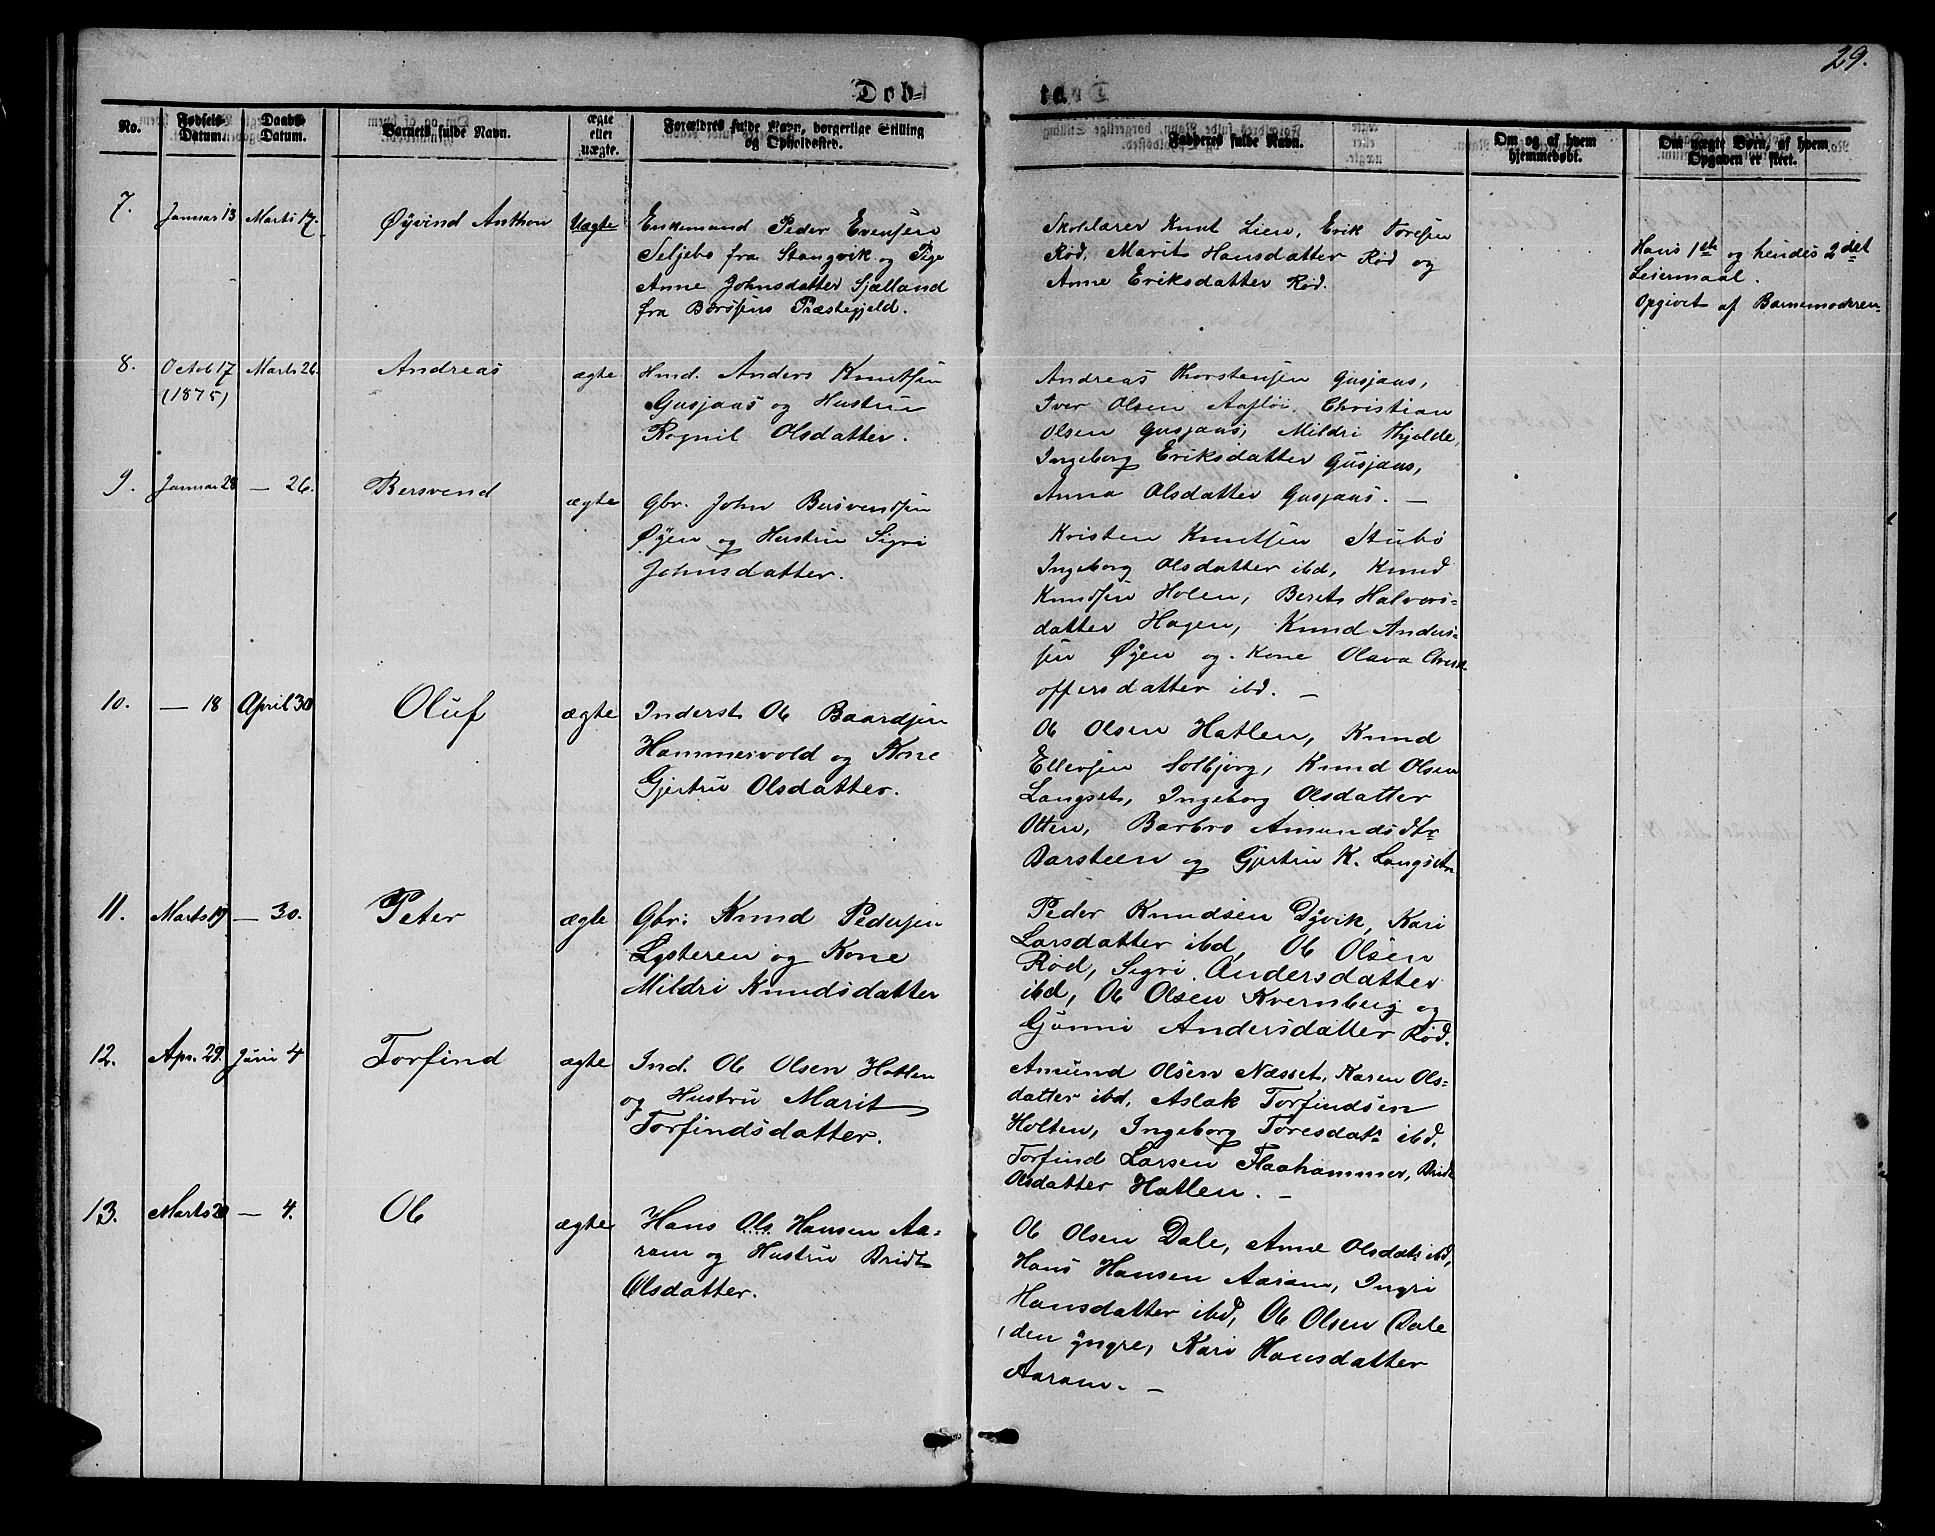 29.
Døb-
No.
Fødsels-
Datum.
Daabs-
Datum.
Barnets fulde Navn.
ægte
eller
uægte.
Forældres fulde Navn, borgerlige Stilling
og Opholdssted.
Fadderes fulde Navn.
Om og af hvem
hjemmedøbt.
Om uægte Børn, af hvem
Opgaven er skeet.
7.
Januar 13
Marts 17.
Øyvind Anthon
Uægte
Enkemand Peder Evensen
Seljebø fra Stangvik og Pige
Anne Johnsdatter Sjælland
fra Børsens Præstegjeld.
Skolelærer Knut Lien, Erik Toresen
Rød, Marit Hansdatter Rød og
Anne Eriksdatter Rød.
Hans 1ste og hendes 2det
Leiermaal.
Opgivet af Barnemoderen
8.
Octob 17
(1875)
Marts 26.
Andreas
ægte
Hmd. Anders Knutsen
Gusjaas og Hustru
Rognil Olsdatter.
Andreas Thorstensen Gusjaas,
Iver Olsen Aafløi, Christian
Olsen Gusjaas, Mildri Hjelde,
Ingeborg Eriksdatter Gusjaas,
Anna Olsdatter Gusjaas. —
9.
Januar 28
— 26.
Bersvend
ægte
Gbr. John Bersvendsen
Øyen og Hustru Sigri
Johnsdatter.
Kristen Knutsen Stubø
Ingeborg Olsdatter ibd, Knud
Knudsen Holen, Beret Halvors-
datter Hagen, Knud Anders-
sen Øyen og Kone Olava Christ-
offersdatter ibd. —
10.
— 18
April 30
Oluf
ægte
Inderst Ole Baardsen
Hammervold og Kone
Gjertru Olsdatter.
Ole Olsen Hatlen, Knud
Ellevsen Solbjørg, Knud Olsen
Langset, Ingeborg Olsdatter
Otten, Barbro Amundsdtr
Darsteen og Gjertru K. Langset
11.
Marts 19
— 30.
Peter
ægte
Gbr: Knud Pedersen
Lysteren og Kone
Mildri Knudsdatter
Peder Knudsen Dyvik, Kari
Larsdatter ibd, Ole Olsen
Rød, Sigri Andersdatter
ibd, Ole Olsen Kvernberg og
Gjønni Andersdatter Rød.
12.
Apr. 29.
Juni 4
Torfind
ægte
Ind. Ole Olsen Hatlen
og Hustru Marit
Torfindsdatter.
Amund Olsen Næsset, Karen Ols-
datter ibd, Aslak Torfindsen
Holten, Ingeborg Toresdat: ibd.
Torfind Larsen Flaahammer, Bridt
Olsdatter Hatlen. —
13.
Marts 20
— 4.
Ole
ægte
Hans Ols Hansen Aa-
ram og Hustru Bridt
Olsdatter.
Ole Olsen Dale, Anne Olsdat: ibd,
Hans Hansen Aaram, Ingri
Hansdatter ibd, Ole Olsen Dale
den yngre, Kari Hansdatter
Aaram. —